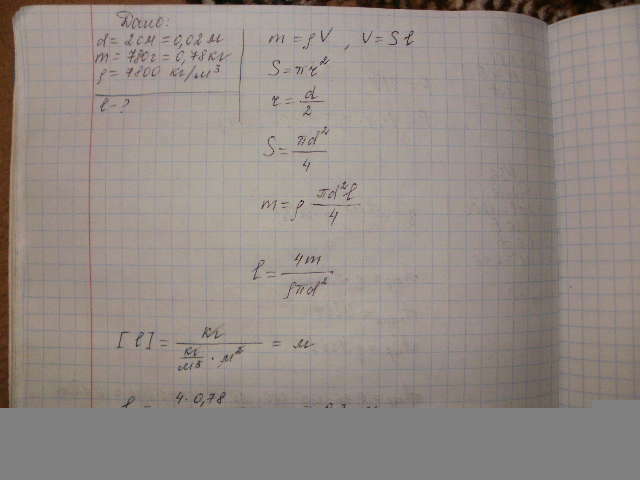 Дано:
d = 2см = 0,02 м
m = 780г = 0,78 кг
ρ = 7800 кг/м³
l - ?
m = ρV , V = Sl
S = πr²
r = d/2
S = πd²/4
m = ρ πd²l/4
l = 4m/ρπd²
[l] = кг/(кг/м³ · м²) = м
4·0,78